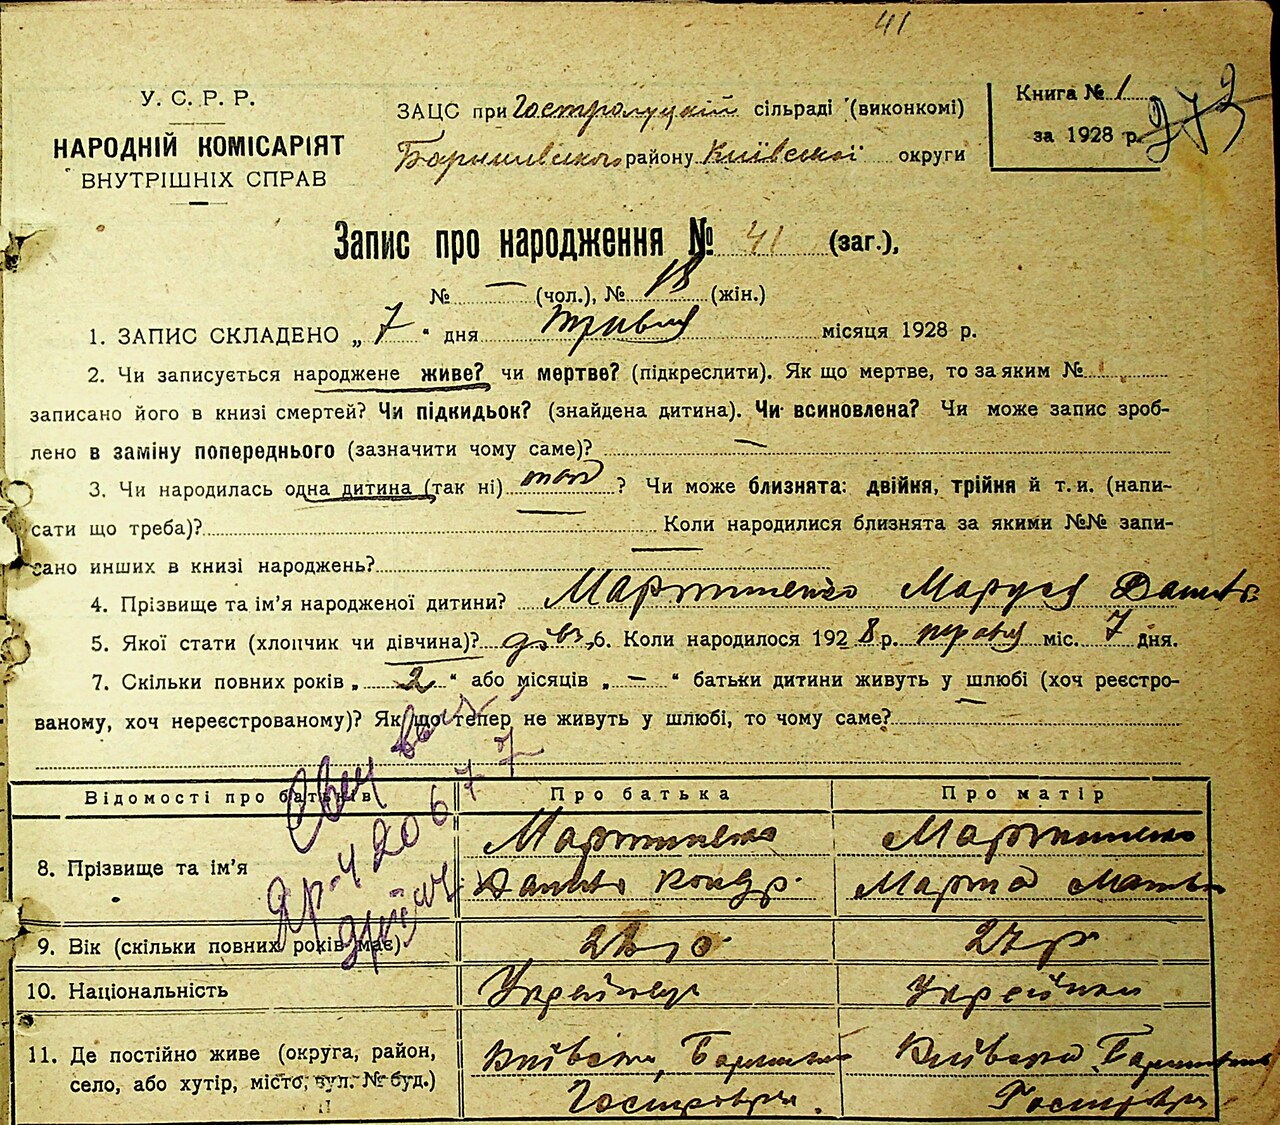 41
У. С. Р. Р.
НАРОДНІЙ КОМІСАРІЯТ
ВНУТРІШНІХ СПРАВ
ЗАЦС при Гостролуцкій сільраді (виконкомі)
району Київської округи
Книга № 1
за 1928 р.
Запис про народження № 41 (заг.),
№ — (чол.), № 18 (жін.)
1. ЗАПИС СКЛАДЕНО „ 7 “ дня травня місяця 1928 р.
2. Чи записується народжене живе? чи мертве? (підкреслити). Як що мертве, то за яким №
записано його в книзі смертей? Чи підкидьок? (знайдена дитина). Чи всиновлена? Чи може запис зроб-
лено в заміну попереднього (зазначити чому саме)? —
3. Чи народилась одна дитина (так ні) так ? Чи може близнята: двійня, трійня й т. и. (напи-
сати що треба)? — Коли народилися близнята за якими №№ запи-
сано инших в книзі народжень? —
4. Прізвище та ім’я народженої дитини? Мартиненко Маруся
5. Якої стати (хлопчик чи дівчина)? дівч. 6. Коли народилося 1928 р. міс. 7 дня.
7. Скільки повних років „ 2 “ або місяців „ — “ батьки дитини живуть у шлюбі (хоч реєстро-
ваному, хоч нереєстрованому)? Як що тепер не живуть у шлюбі, то чому саме? —
Відомості про батьків Про батька Про матір
8. Прізвище та ім’я
Мартиненко Мартиненко
Данило Кондр. Марта
9. Вік (скільки повних років має) 27 р
10. Національність Українец Українка
11. Де постійно живе (округа, район,
село, або хутір, місто, вул. № буд.)